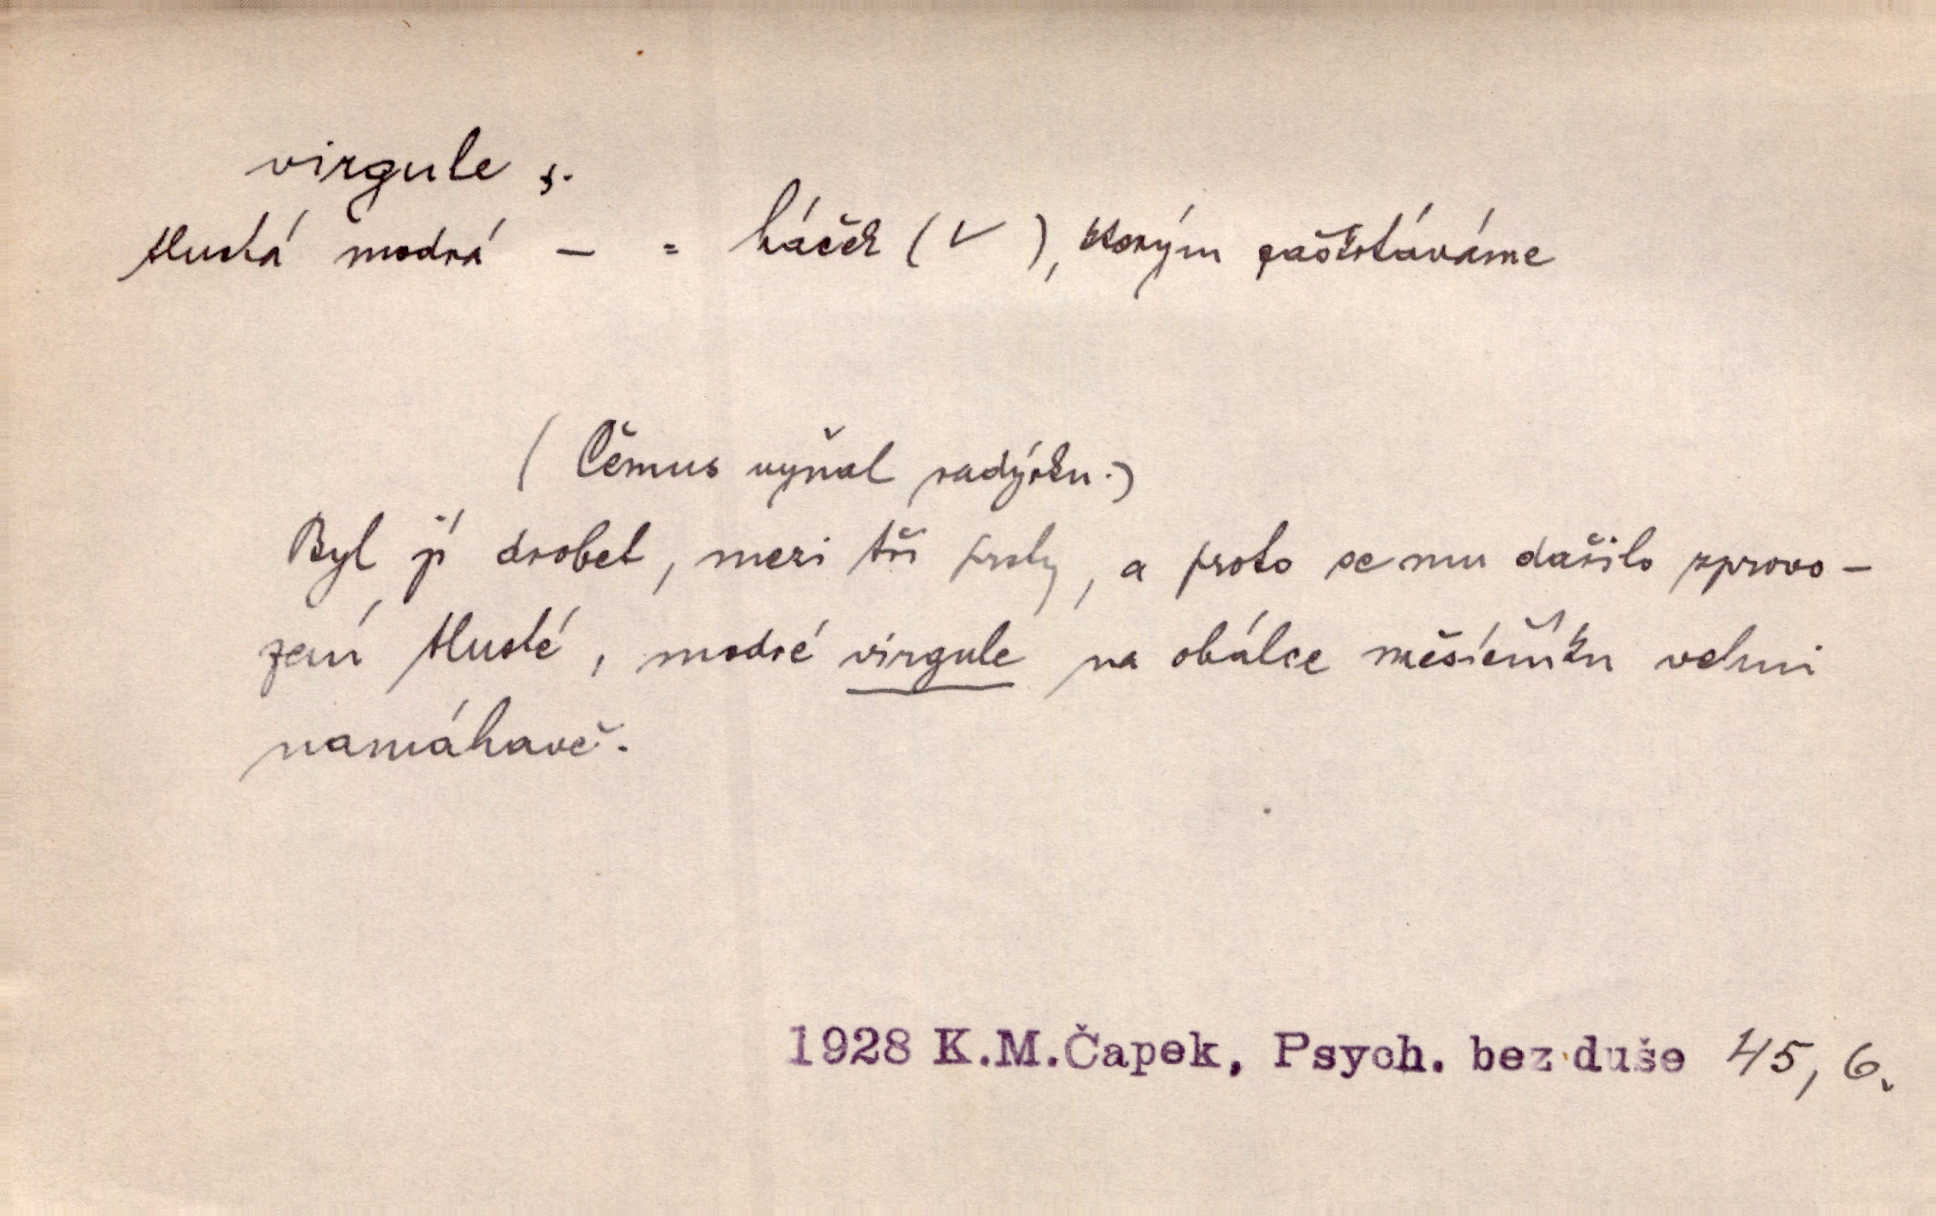 virgule s.
tlustá modrá — = háček (✓), kterým zaškrtáváme
( Čemus vyňal radýrku.)
Byl jí drobet, mezi tři prsty, a proto se mu dařilo zprovo-
zení tlusté, modré virgule na obálce měsíčníku velmi
namáhavě.
1928 K.M.Čapek, Psych. bez duše 45, 6.